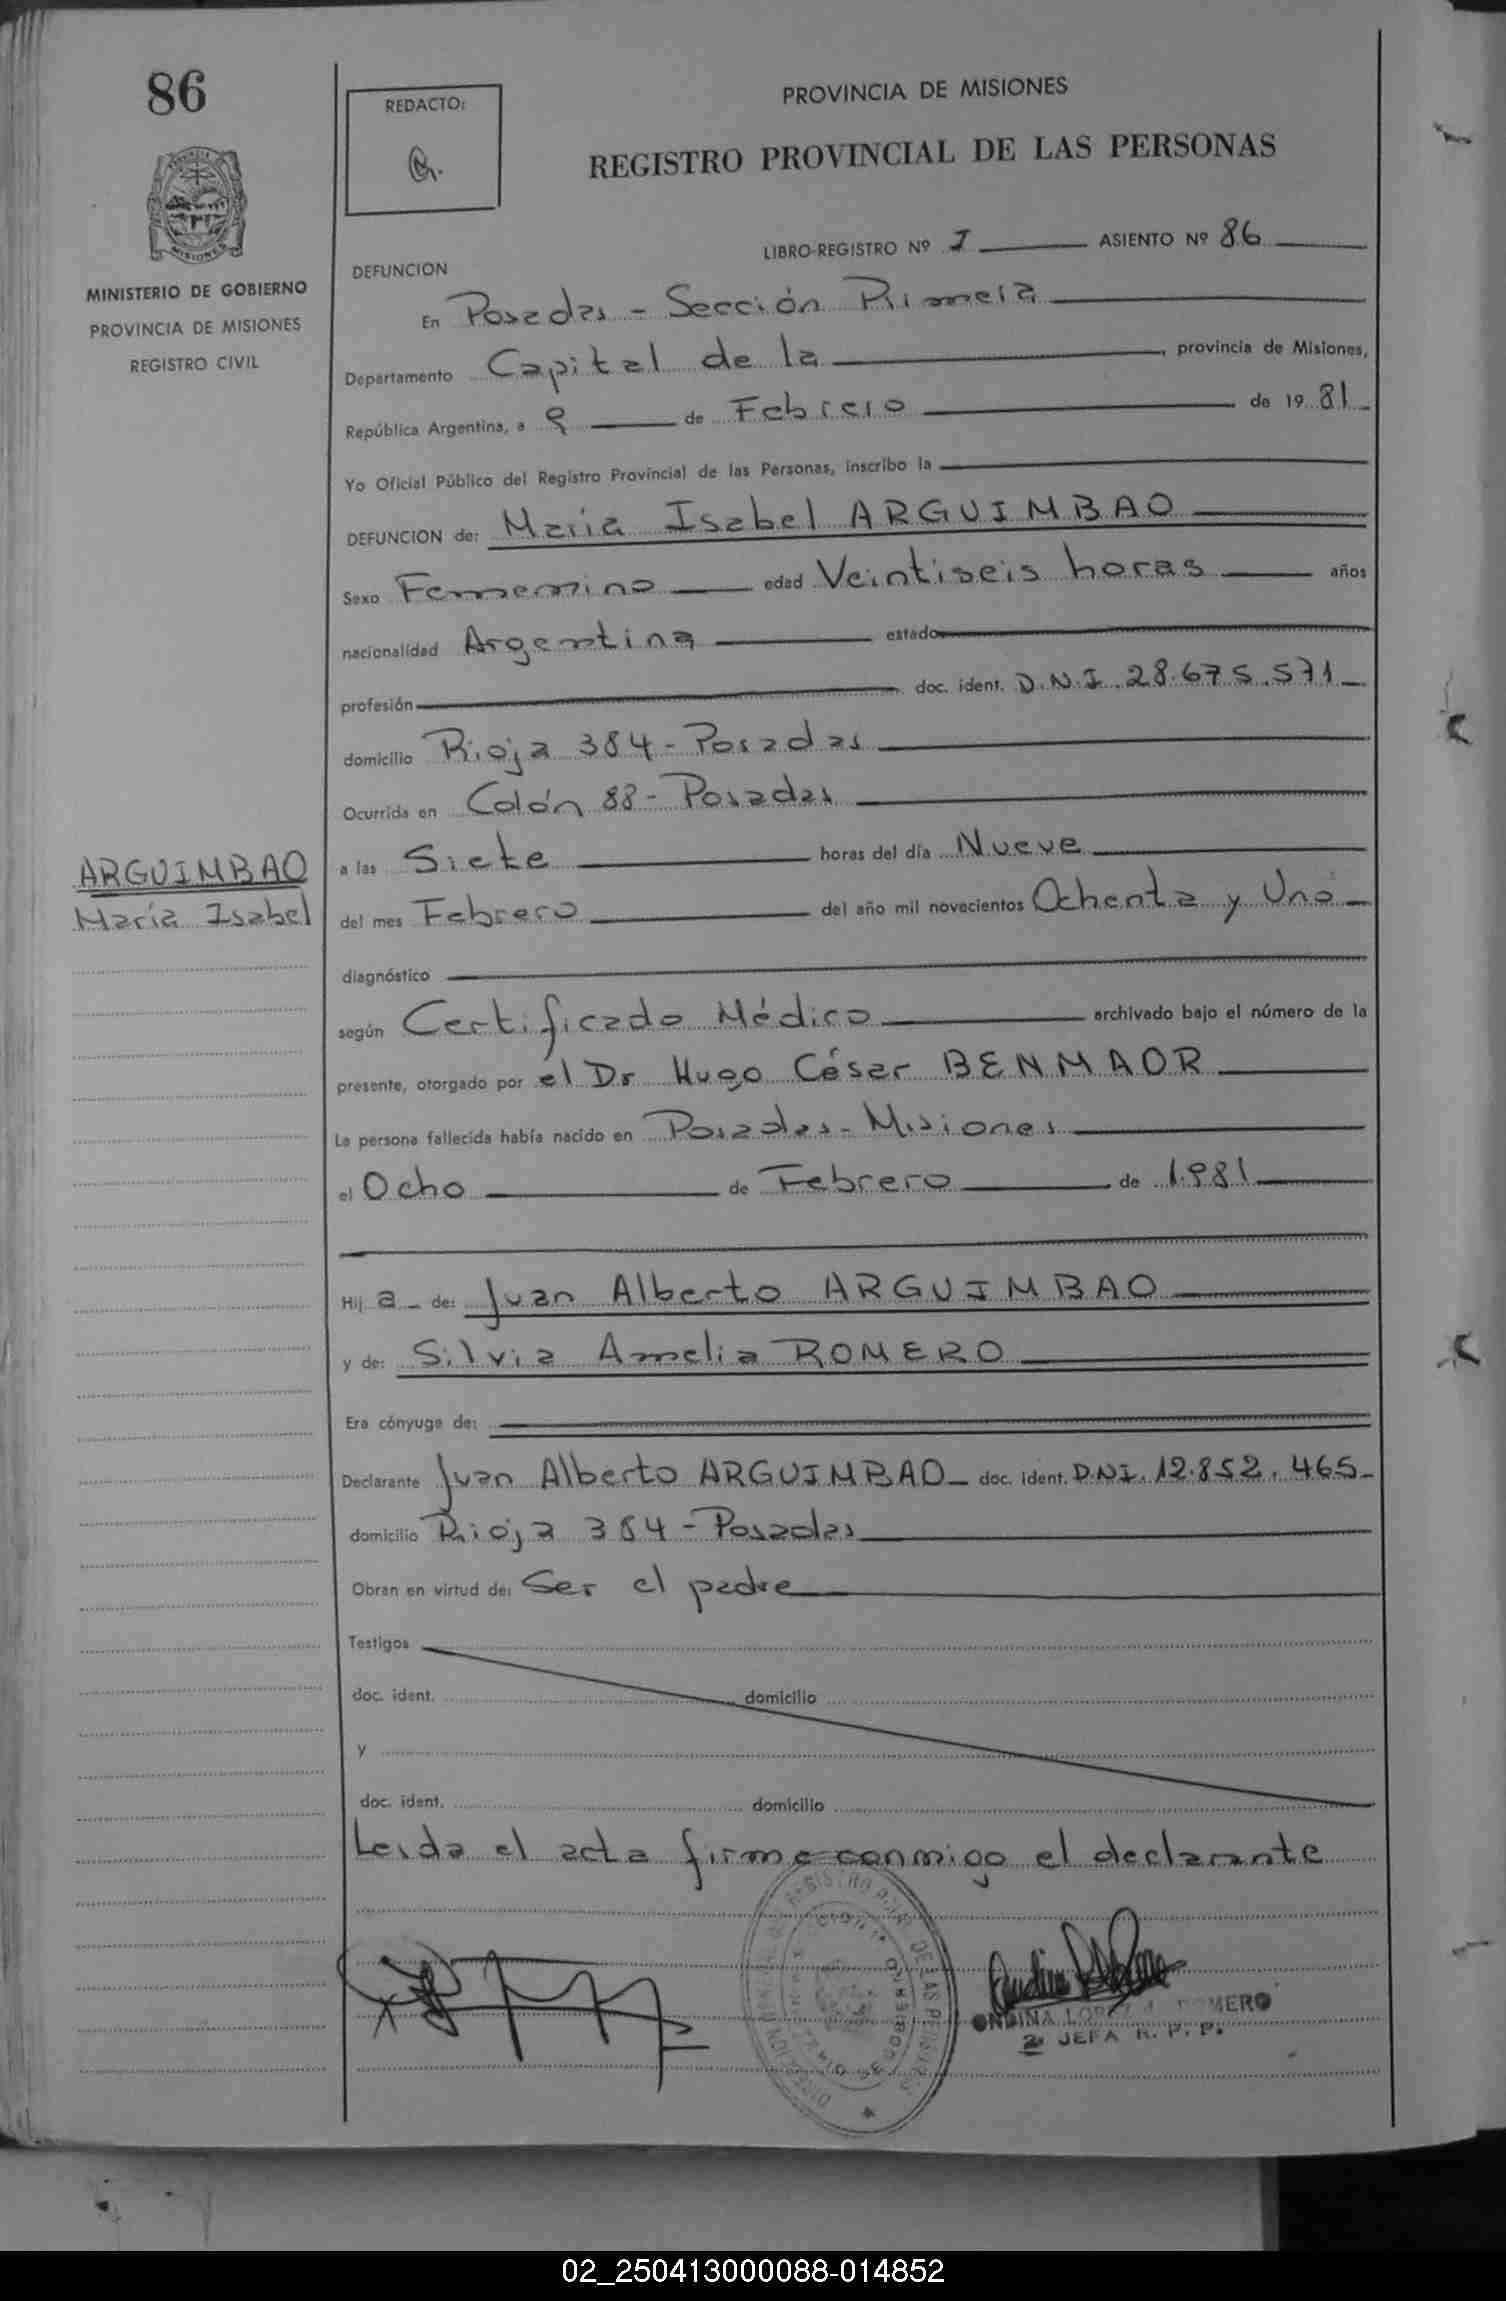 86
REDACTO:
PROVINCIA DE MISIONES
REGISTRO PROVINCIAL DE LAS PERSONAS
MISIONES
MINISTERIO DE GOBIERNO
PROVINCIA DE MISIONES
REGISTRO CIVIL
LIBRO-REGISTRO Nº I ASIENTO Nº 86
DEFUNCION
En Posadas - Sección Primera
Departamento Capital de la , provincia de Misiones,
República Argentina, a 9 de Febrero de 19 81
Yo Oficial Público del Registro Provincial de las Personas, inscribo la
DEFUNCION de: María Isabel ARGUIMBAO
Sexo Femenino edad Veintiseis horas años
nacionalidad Argentina estado
profesión doc. ident. D.N.I. 28.675.571
domicilio Rioja 384 - Posadas
Ocurrida en Colón 88 - Posadas
ARGUIMBAO
María Isabel
a las Siete horas del día Nueve
del mes Febrero del año mil novecientos Ochenta y Uno
diagnóstico
según Certificado Médico archivado bajo el número de la
presente, otorgado por el Dr Hugo César BENMAOR
La persona fallecida había nacido en Posadas - Misiones
el Ocho de Febrero de 1.981
Hij a de: Juan Alberto ARGUIMBAO
y de: Silvia Amelia ROMERO
Era cónyuge de:
Declarante Juan Alberto ARGUIMBAO doc. ident. D.N.I. 12.852.465
domicilio Rioja 384 - Posadas
Obran en virtud de: Ser el padre
Testigos
doc. ident. domicilio
y
doc. ident. domicilio
Leída el acta firma conmigo el declarante
ONDINA ROMERO
2ª JEFA R. P. P.
02_250413000088-014852